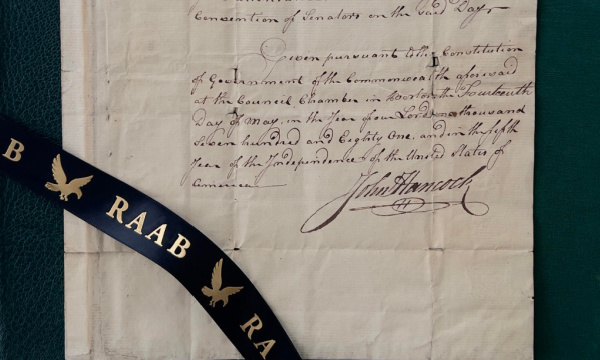 Convention of Senators on the said Day
Given pursuant to the Constitution
of Government of the Commonwealth aforesaid
at the Council Chamber in Boston the Fourteenth
Day of May, in the Year of our Lord one thousand
Seven hundred and Eighty One, and in the fifth
Year of the Independence of the United States of
America
John Hancock
B
RAAB
RA